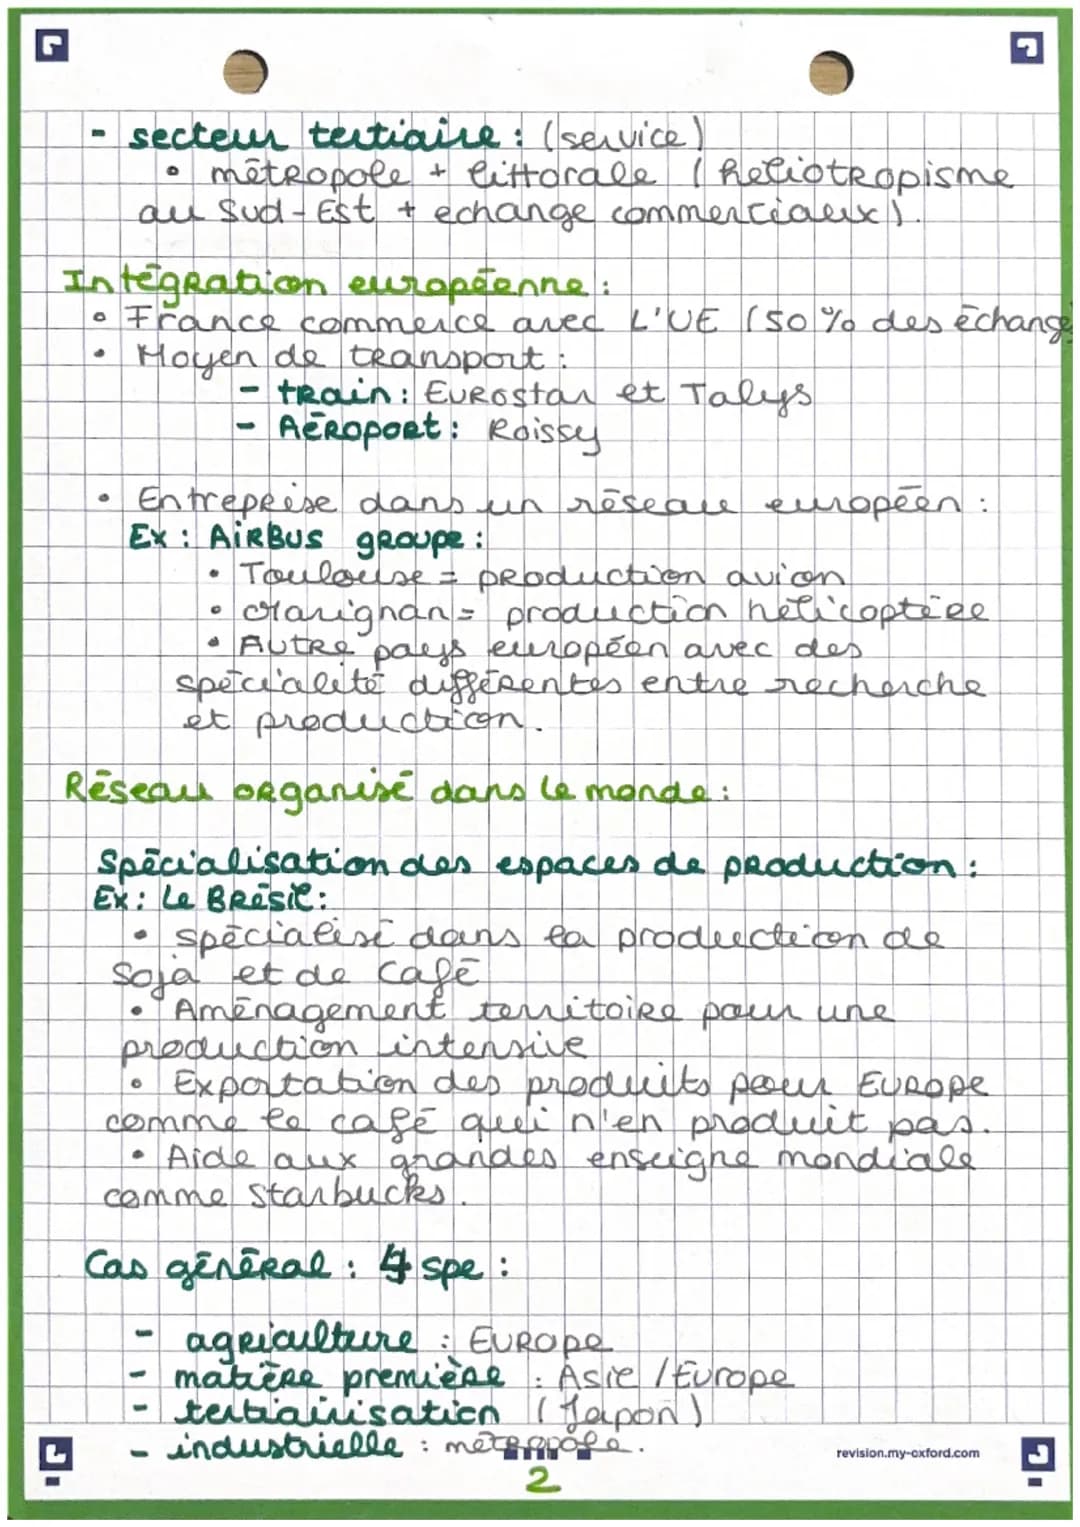 - secteur tertiaire : (service)
• métropole + littorale (heliotropisme
au Sud-Est + echange commerciaux).
Intégration européenne :
• France commerce avec L'UE (50 % des échange
• Moyen de transport :
- train : Eurostar et Talys
- Aéroport : Roissy
• Entreprise dans un réseau européen :
Ex : AIRBUS groupe :
• Toulouse = production avion
• Marignan = production hélicoptère
• Autre pays européen avec des
spécialité différentes entre recherche
et production.
Réseau organisé dans le monde :
Spécialisation des espaces de production :
Ex : Le Brésil :
• spécialisé dans la production de
soja et de café
• Aménagement territoire pour une
production intensive
• Exportation des produits pour Europe
comme le café qui n'en produit pas.
• Aide aux grandes enseigne mondiale
comme Starbucks.
Cas général : 4 spe :
- agriculture : Europe
- matière première : Asie / Europe
- tertiairisation (Japon)
- industrielle : métropole.
revision.my-oxford.com
2